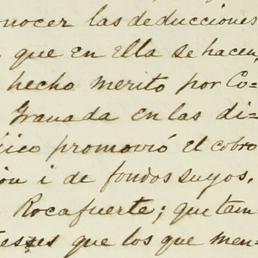 onocer las deducciones
que en Ella se hacen,
hecho merito por Co-
Granada en las di-
ico promovió el cobro
ion i de fondos suyos,
Rocafuerte; que tam
tes que los que men-